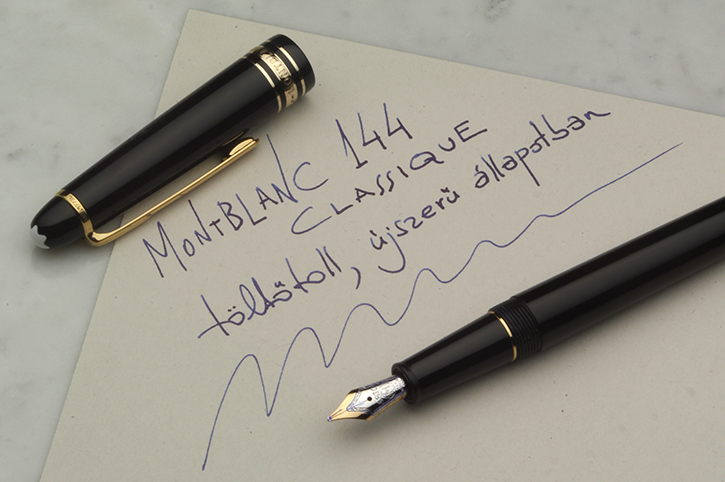 MONTBLANC 144
CLASSIQUE
töltőtoll, újszerű állapotban